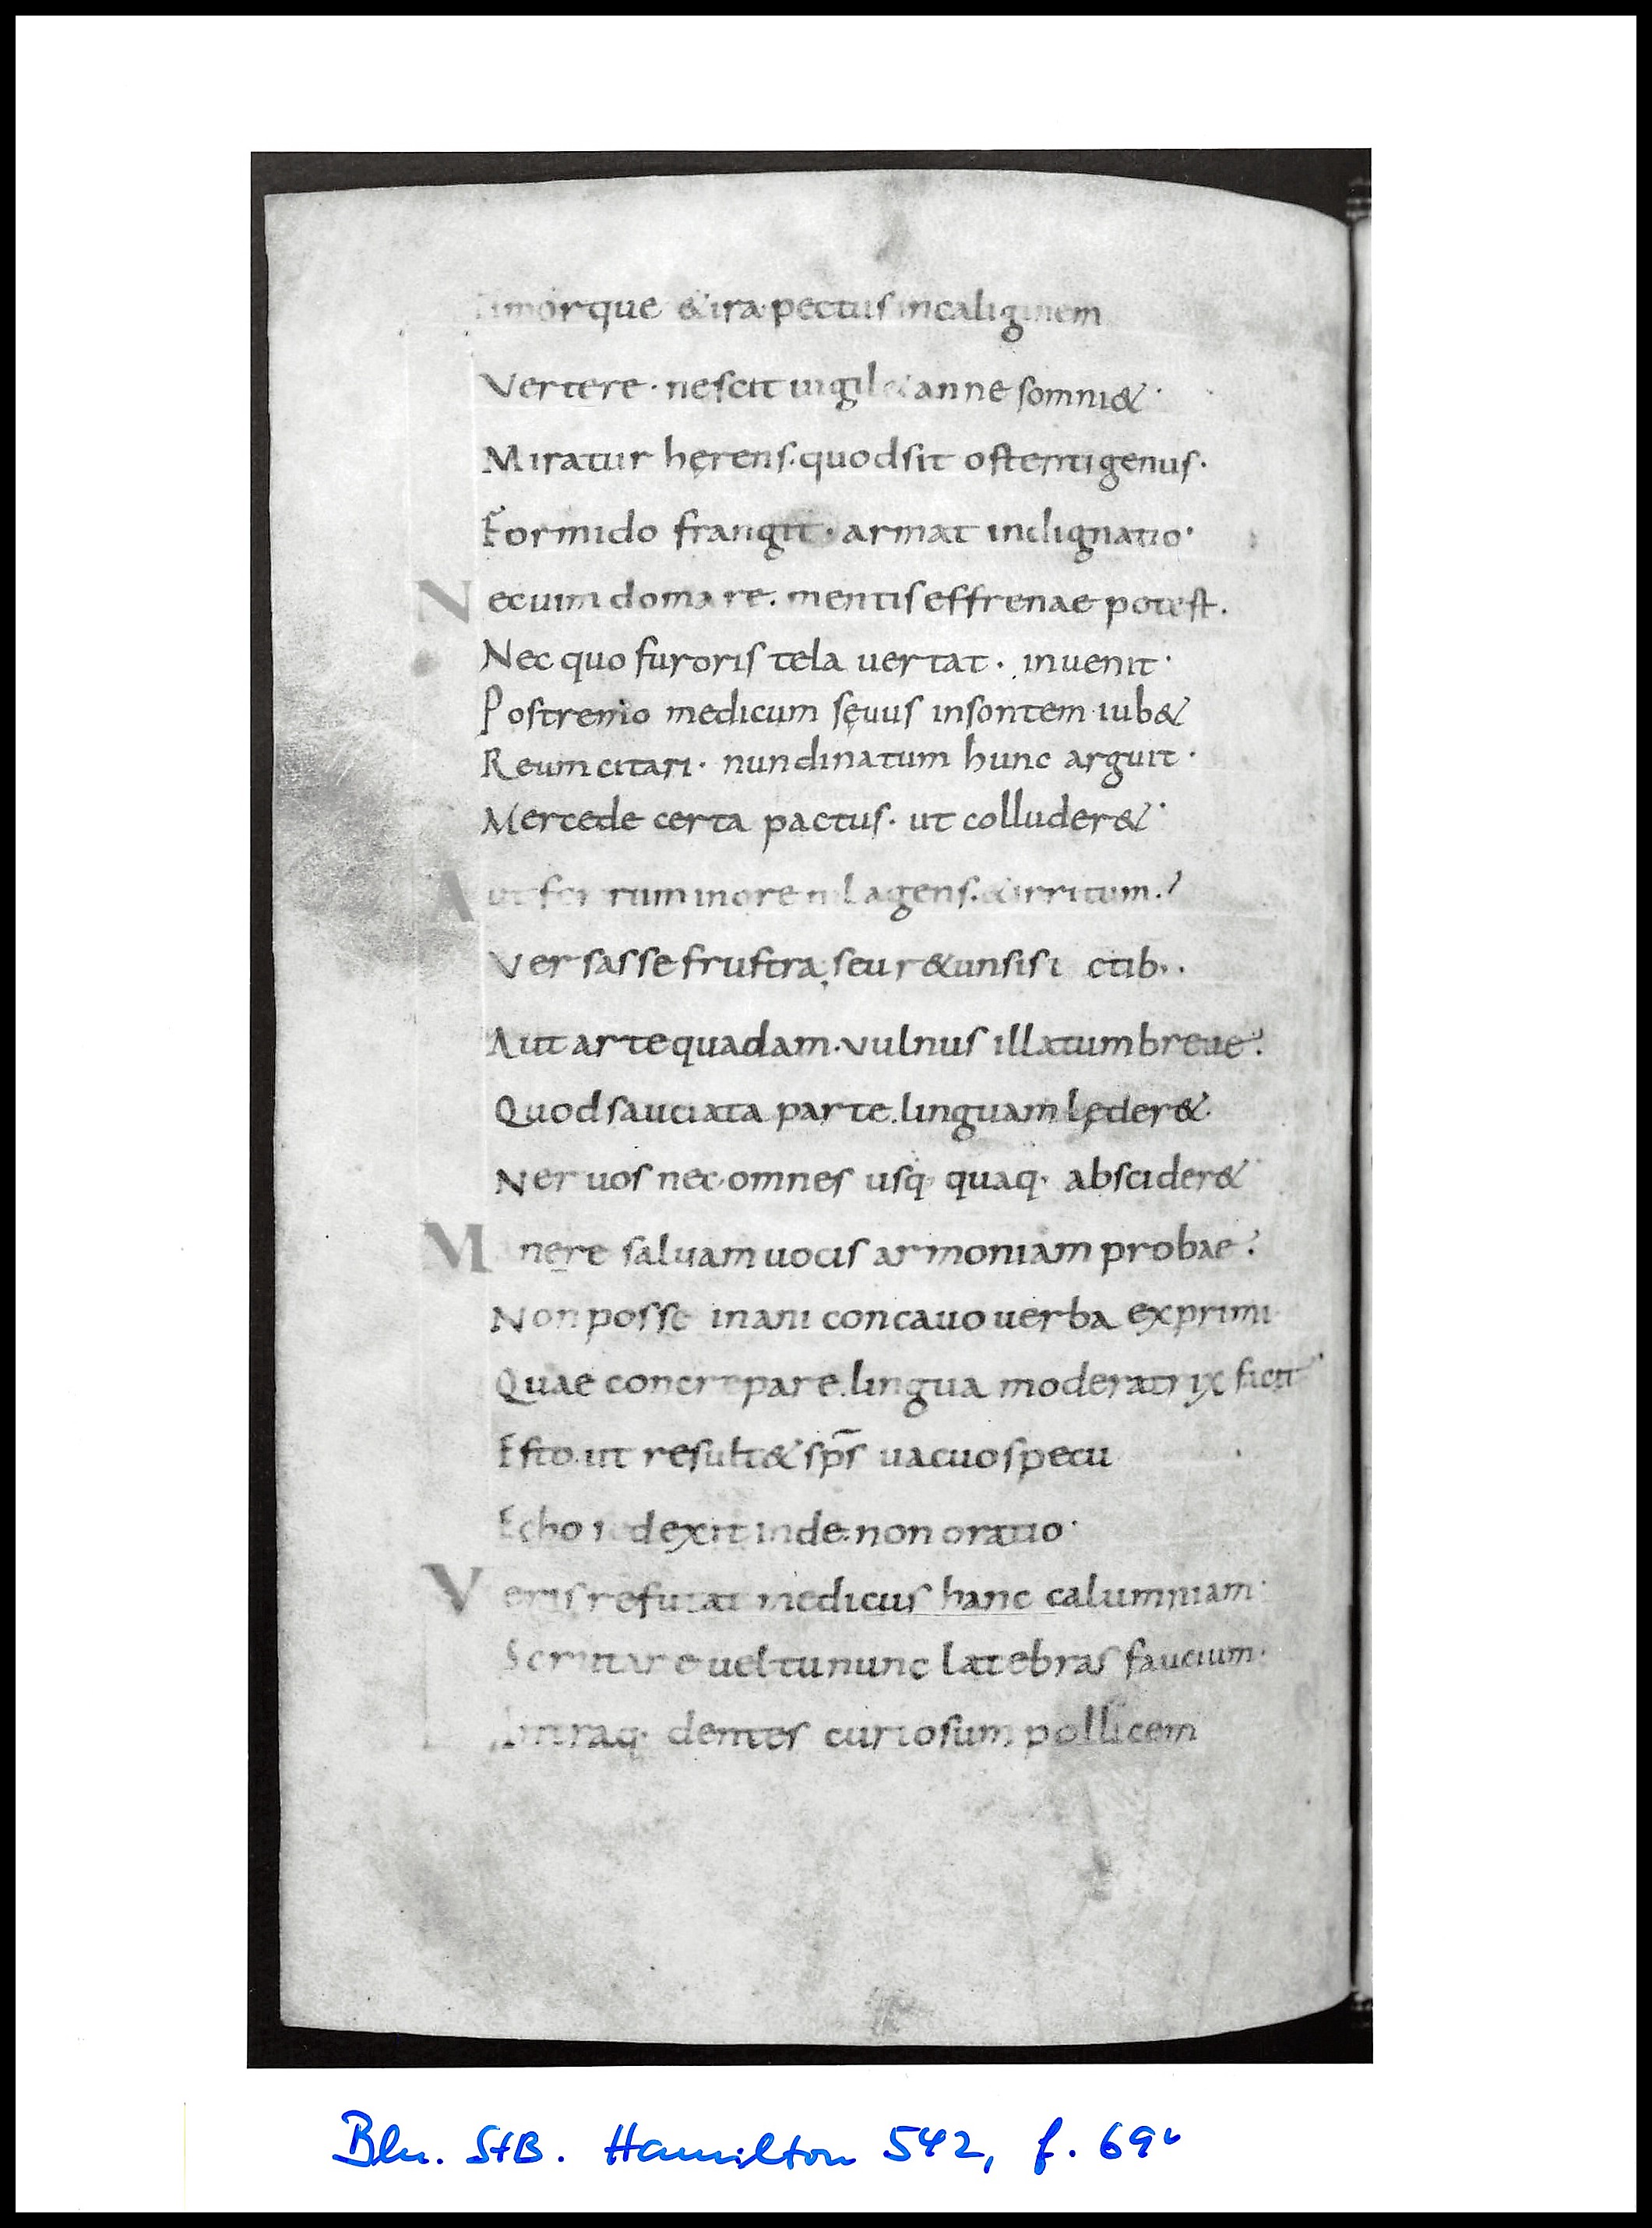 Timorque & ira pectus in caliginem
Vertere · nescit uigil& anne somni& ·
Miratur hęrens · quod sit ostenti genus ·
Formido frangit · armat indignatio ·
Nec uim domare . mentis effrenae potest .
Nec quo furoris tela uertat · inuenit ·
Postremo medicum sęuus insontem iub&
Reum citari · nundinatum hunc arguit ·
Mercede certa pactus · ut colluder& ·
Aut ferrum in ore nil agens . & irritum .?
Versasse frustra; seu r&unsis ictib· .
Aut arte quadam · vulnus illatum breue?
Quod sauciata parte . linguam lęder& ·
Neruos nec omnes usq· quaq· abscider&
M nere saluam uocis armoniam probae?
Non posse inani concauo uerba exprimi
Quae concrepare . lingua moderatrix facit ·
Esto . ut result& sp̄s uacuo specu
Echo red exit inde . non oratio ·
Veris refutat medicus hanc calumniam ·
Scrutare uel tu nunc latebras faucium ·
Intraq· dentes curiosum pollicem
Bln. StB. Hamilton 542, f. 69v